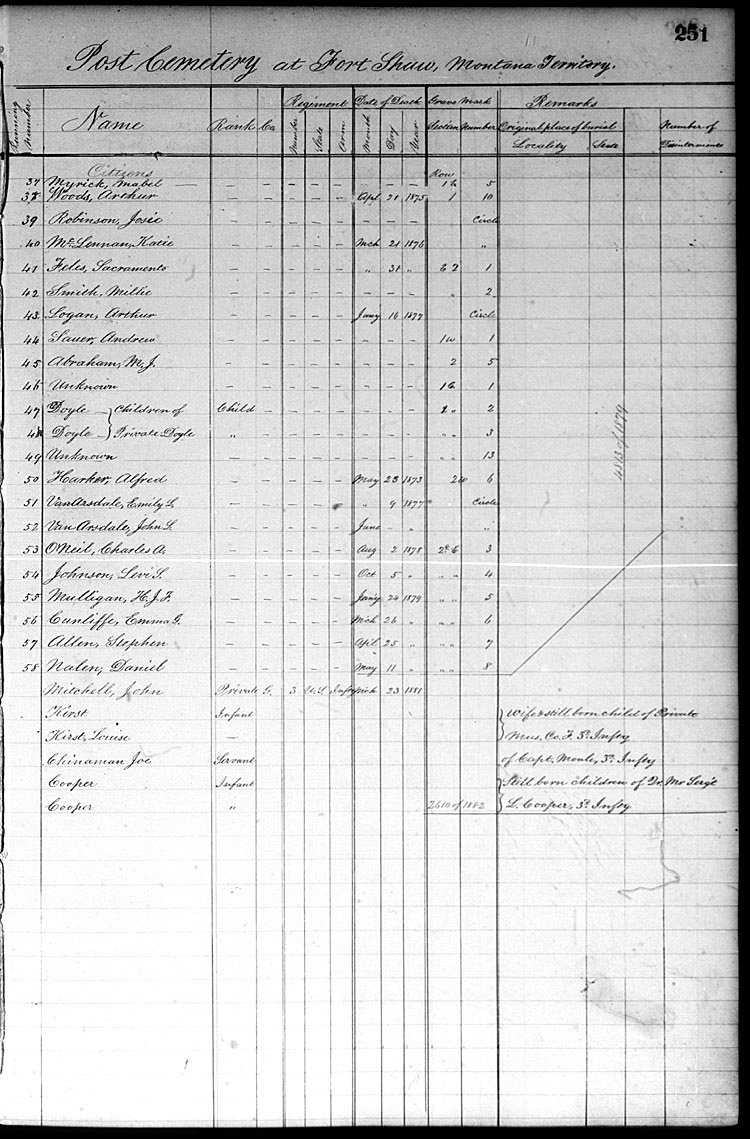 251
Post Cemetery at Fort Shaw, Montana Territory.
Running Number Name Rank Co. Regiment Number State Arm Date of Death Month Day Year Grave Mark Section Number Remarks Original place of burial Locality State Number of Disinterments
Citizens Row
37 Myrick, Mabel — — — — — — — — — 5
38 Woods, Arthur — — — — — Apl. 21 1875 1 10
39 Robinson, Josie — — — — — — — — Circle
40 McLennan, Katie — — — — — Mch 21 1876 "
41 Feles, Sacramento — — — — — " 31 " 2 1
42 Smith, Millie — — — — — — — — " 2
43 Logan, Arthur — — — — — Jany 16 1877 Circle
44 Sauer, Andrew — — — — — — — — 1 w 1
45 Abraham, M. J. — — — — — — — — 2 5
46 Unknown — — — — — — — — 1 1
47 Doyle } Children of Child — — — — — — — 2 " 2
48 Doyle } Private Doyle " — — — — — — — " " 3
49 Unknown — — — — — — — — " " 13
50 Harker, Alfred — — — — — May 23 1873 2 w 6
51 Van Arsdale, Emily L. — — — — " 9 1877 Circle
52 Van Arsdale, John L. — — — — — June — " "
53 O'Neil, Charles A. — — — — — Aug 2 1878 3
54 Johnson, Levi S. — — — — — Oct 5 " " " 4
55 Mulligan, H. J. F. — — — — — Jany 24 1879 " " 5
56 Cunliffe, Emma G. — — — — — Mch 26 " " " 6
57 Allen, Stephen — — — — — Apil 25 " " " 7
58 Nalen, Daniel — — — — — May 11 " " " 8
4813 of 1879
Mitchell, John Private G. 3 U.S. Infry Mch 23 1881
Kirst Infant } Wife & still born child of Private
Kirst, Louise — } Mus. Co. F. 3d Infry
Chinaman Joe Servant of Capt. Moale, 3d Infry
Cooper Infant } Still born children of Dr. Mr Sergt
Cooper " 2610 of 1882 } L. Cooper, 3d Infry